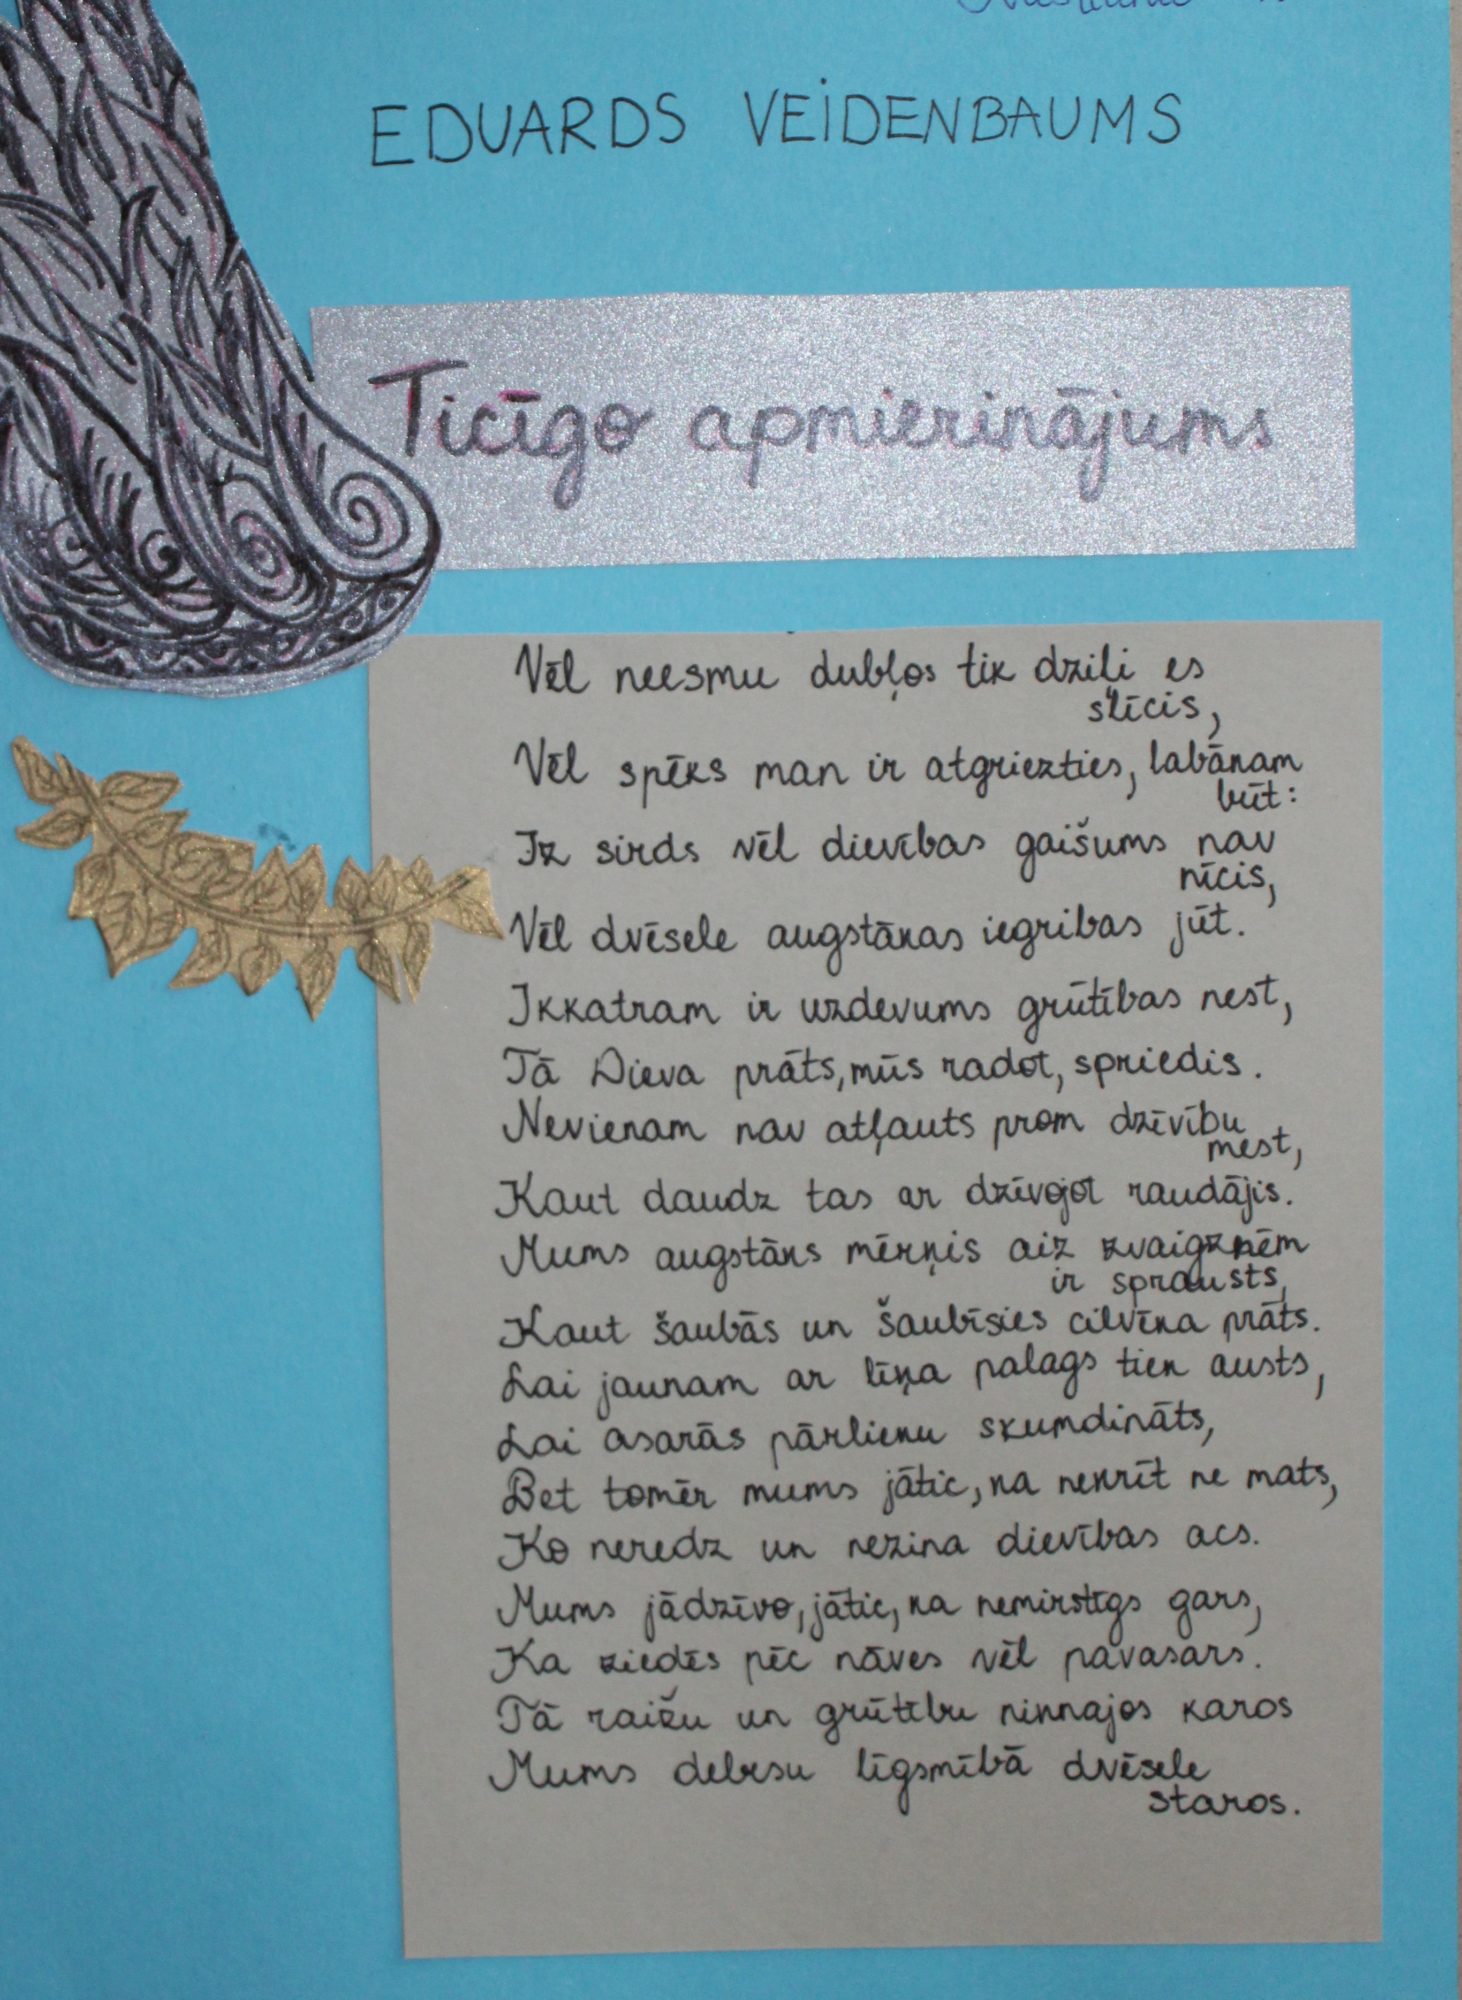 EDUARDS VEIDENBAUMS
Ticīgo apmierinājums
Vēl neesmu dubļos tik dziļi es
slīcis,
Vēl spēks man ir atgriezties, labākam
būt:
Iz sirds vēl dievības gaišums nav
nīcis,
Vēl dvēsele augstākas iegribas jūt.
Ikkatram ir uzdevums grūtības nest,
Tā Dieva prāts, mūs radot, spriedis.
Nevienam nav atļauts prom dzīvību
mest,
Kaut daudz tas ar dzīvojot raudājis.
Mums augstāks mērķis aiz zvaigznēm
ir sprausts,
Kaut šaubās un šaubīsies cilvēka prāts.
Lai jaunam ar līķa palags tiek austs,
Lai asarās pārlieku skumdināts,
Bet tomēr mums jātic, ka nekrīt ne mats,
Ko neredz un nezina dievības acs.
Mums jādzīvo, jātic, ka nemirstīgs gars,
Ka ziedēs pēc nāves vēl pavasars.
Tā raižu un grūtību niknajos karos
Mums debesu līgsmībā dvēsele
staros.